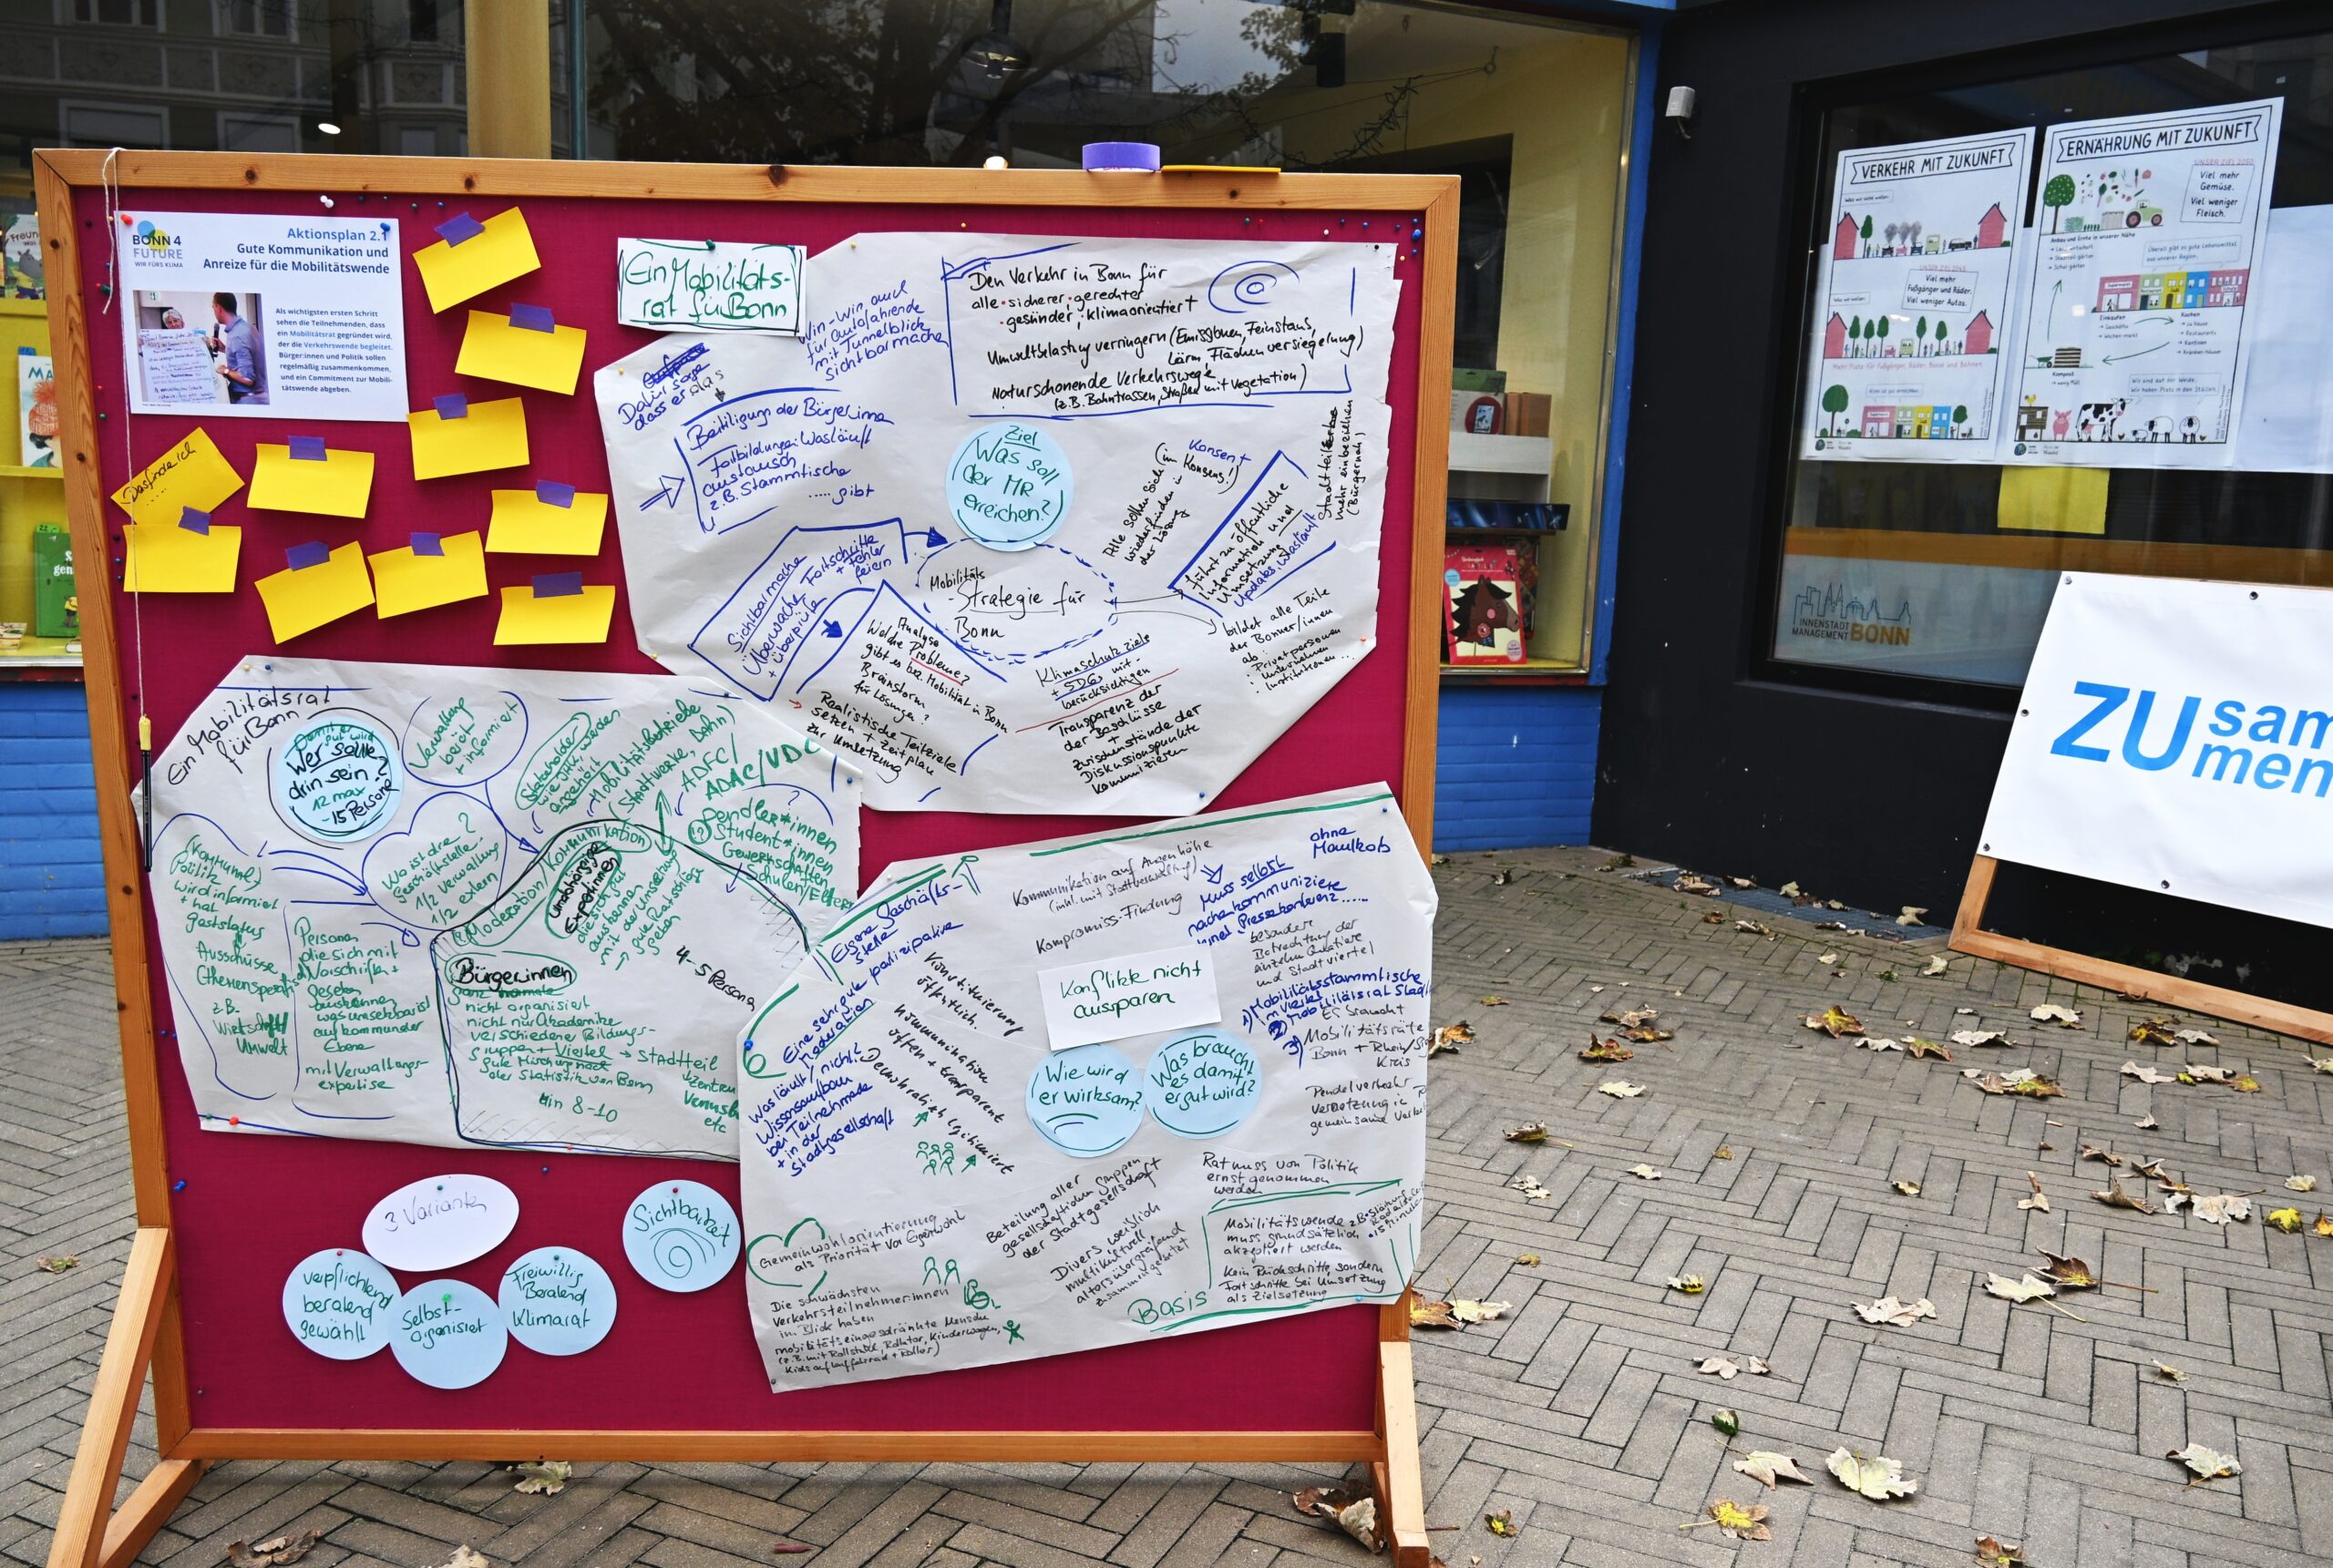 BONN 4
FUTURE
WIR FÜRS KLIMA
Aktionsplan 2.1
Gute Kommunikation und
Anreize für die Mobilitätswende
Als wichtigsten ersten Schritt
sehen die Teilnehmenden, dass
ein Mobilitätsrat gegründet wird,
der die Verkehrswende begleitet.
Bürger:innen und Politik sollen
regelmäßig zusammenkommen,
und ein Commitment zur Mobili-
tätswende abgeben.
Das finde ich
.....
Ein Mobilitäts-
rat für Bonn
Win-Win, auch
für Autofahrende
mit Tunnelblick
sichtbar machen
Den Verkehr in Bonn für
alle • sicherer • gerechter
• gesünder • klimaorientiert
Umweltbelastung verringern (Emissionen, Feinstaub,
Lärm, Flächenversiegelung)
Naturschonende Verkehrswege
(z.B. Bahntrassen, Straßen mit Vegetation)
Dafür sorge
dass er das
Beteiligung der Bürger:inne
Fortbildungen: Was läuft
Austausch
z.B. Stammtische
..... gibt
Ziel
Was soll
der MR
erreichen?
Konsent
(im Konsens!)
Alle sollen sich
wiederfinden in
der Lösung
führt zu öffentliche
Information und
Umsetzung
Updates, was läuft
mehr einbeziehen
(Bürgernah)
Sichtbarmache
Überwache
+ überprüfe
Fortschritte
+ Fehler
feiern
Mobilitäts
-Strategie für
Bonn
Analyse
Welche Probleme?
gibt es bez. Mobilität in Bonn
Brainstorm
für Lösungen?
Realistische Teilziele
setzen + Zeitplan
zur Umsetzung
Klimaschutzziele
+ SDGs mit-
berücksichtigen
Transparenz der
der Beschlüsse
+
Zwischenstände der
Diskussionspunkte
kommunizieren
bildet alle Teile
der Bonner/innen
ab:
• Privatpersonen
• Unternehmen
• Institutionen...
Ein Mobilitätsrat
für Bonn
Damit er
gut wird
Wer sollte
drin sein?
12 max
-15 Persone
Verwaltung
berät
+ informiert
Stakeholder
wie IHK, werden
angehört
Mobilitätsbetriebe
(Stadtwerke, Bahn)
ADFC/
ADAC/VDC
Pendler*innen
Student*innen
Gewerkschaften
Schulen/Eltern
Wo ist die?
Geschäftsstelle
1/2 Verwaltung
1/2 extern
(Kommunal)
Politik
wird informiert
+ hat
Gaststatus
Ausschüsse
z.B.
Wirtschaft
Umwelt
Persone
die sich mit
Vorschriften +
Gesetzen
auskennen
was umsetzbar ist
auf kommunaler
Ebene
mit Verwaltungs-
expertise
Moderation/Kommunikation
unabhängige
Expertinnen
die sich gut
auskennen
mit der Umsetzung
→ gute Ratschläge
geben
4-5 Persone
Bürger:innen
ganz normale
nicht organisiert
nicht nur Akademike
verschiedene Bildungs-
gruppen + Viertel → Stadtteil
gute Mischung nach
der Statistik von Bonn
Zentrum
etc
8-10
Eigene Geschäfts-
stelle
partizipative
Kommunikation auf Augenhöhe
(inkl. mit Stadtverwaltung)
Kompromiss-Findung
ohne
Maulkorb
Muss selbst
nach kommuniziere
Pressekonferenz.....
besondere
Betrachtung der
einzelnen Quartiere
und Stadtviertel
1) Mobilitätsstammtische
im Viertel
2) Mobilitätsrat Stad
Es braucht
3) Mobilitätsräte
Bonn + Rhein/Sieg
Kreis
Konflikte nicht
aussparen
Wie wird
er wirksam?
Was braucht
es damit
er gut wird?
Konstituierung
öffentlich.
Kommunikation
offen + transparent
demokratisch legitimiert
Eine sehr gute
Moderation
Was läuft/nicht?
Wissensaufbau
bei Teilnehmende
+ in der
Stadtgesellschaft
Pendelverkehr
Vernetzung in
gemeinsame
Rat muss von Politik
ernst genommen
werden
Mobilitätswende
muss grundsätzlich
akzeptiert werden
Kein Rückschritte, sondern
Fortschritte bei Umsetzung
als Zielsetzung
Basis
Gemeinwohlorientierung
als Priorität vor Eigenwohl
Beteilung aller
gesellschaftlichen Gruppen
der Stadtgesellschaft
Divers weiblich
multikulturell
altersübergreifend
zusammengesetzt
Die schwächsten
Verkehrsteilnehmer:innen
im Blick haben
mobilitätseingeschränkte Mensche
(z.B. mit Rollstuhl, Rollator, Kinderwagen,
Kids auf Laufferrad + Roller)
3 Varianten
verpflichtend
beratend
gewählt
Selbst-
organisiert
Freiwillig
Beratend
Klimarat
Sichtbarkeit
VERKEHR MIT ZUKUNFT
Was wir nicht wollen:
UNSER ZIEL 2035
Viel mehr
Fußgänger und Räder.
Viel weniger Autos.
Was wir wollen:
Mehr Platz für Fußgänger, Räder, Busse und Bahnen.
ERNÄHRUNG MIT ZUKUNFT
UNSER ZIEL 2030
Viel mehr
Gemüse.
Viel weniger
Fleisch.
Anbau und Ernte in unserer Nähe
Überall gibt es gute Lebensmittel
aus unserer Region.
Einkaufen
Kochen
Kompost
Wir sind auf der Weide.
Wir haben Platz in den Ställen.
INNENSTADT
MANAGEMENT BONN
ZUsam
men